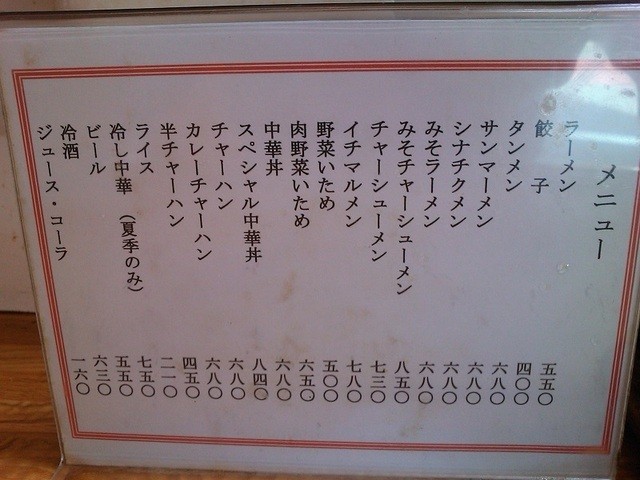 メニュー
ラーメン 五五〇
餃子 四〇〇
タンメン 六八〇
サンマーメン 六八〇
シナチクメン 六八〇
みそラーメン 六八〇
みそチャーシューメン 八五〇
チャーシューメン 七三〇
イチマルメン 七八〇
野菜いため 五〇〇
肉野菜いため 六五〇
中華丼 六八〇
スペシャル中華丼 八四〇
チャーハン 六八〇
カレーチャーハン 六八〇
半チャーハン 四五〇
ライス 二一〇
冷し中華(夏季のみ) 七五〇
ビール 五五〇
冷酒 六三〇
ジュース・コーラ 一六〇